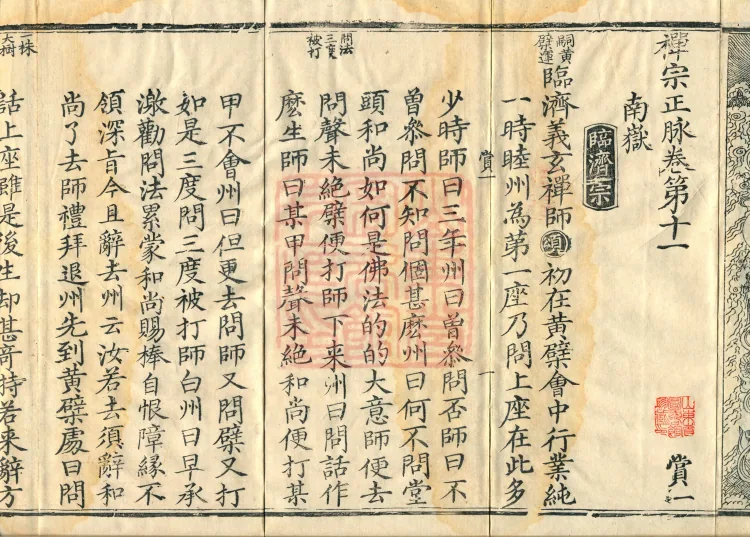 禪宗正脉卷第十一
賞一
南嶽
臨濟宗
嗣黃
檗運
臨濟義玄禪師
頌
初在黃檗會中行業純
一時睦州為第一座乃問上座在此多
賞一
一
少時師曰三年州曰曾叅問否師曰不
曾叅問不知問個甚麽州曰何不問堂
頭和尚如何是佛法的的大意師便去
問法
三度
被打
問聲未絕檗便打師下来州曰問話作
麽生師曰某甲問聲未絕和尚便打某
甲不會州曰但更去問師又問檗又打
如是三度問三度被打師白州曰早承
激勸問法累蒙和尚賜棒自恨障緣不
領深旨今且辭去州云汝若去須辭和
尚了去師禮拜退州先到黃檗處曰問
一株
大樹
話上座雖是後生却甚竒特若来辭方